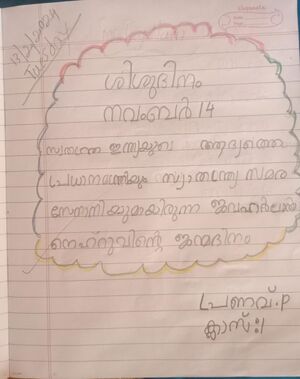 13/2/2024
Tuesday
ശിശുദിനം
നവംബർ 14
സ്വതന്ത്ര ഇന്ത്യയുടെ ആദ്യത്തെ
പ്രധാനമന്ത്രിയും സ്വാതന്ത്ര്യ സമര
സേനാനിയുമായിരുന്ന ജവഹർലാൽ
നെഹ്റുവിന്റെ ജന്മദിനം
പ്രണവ്.P
ക്ലാസ്:1